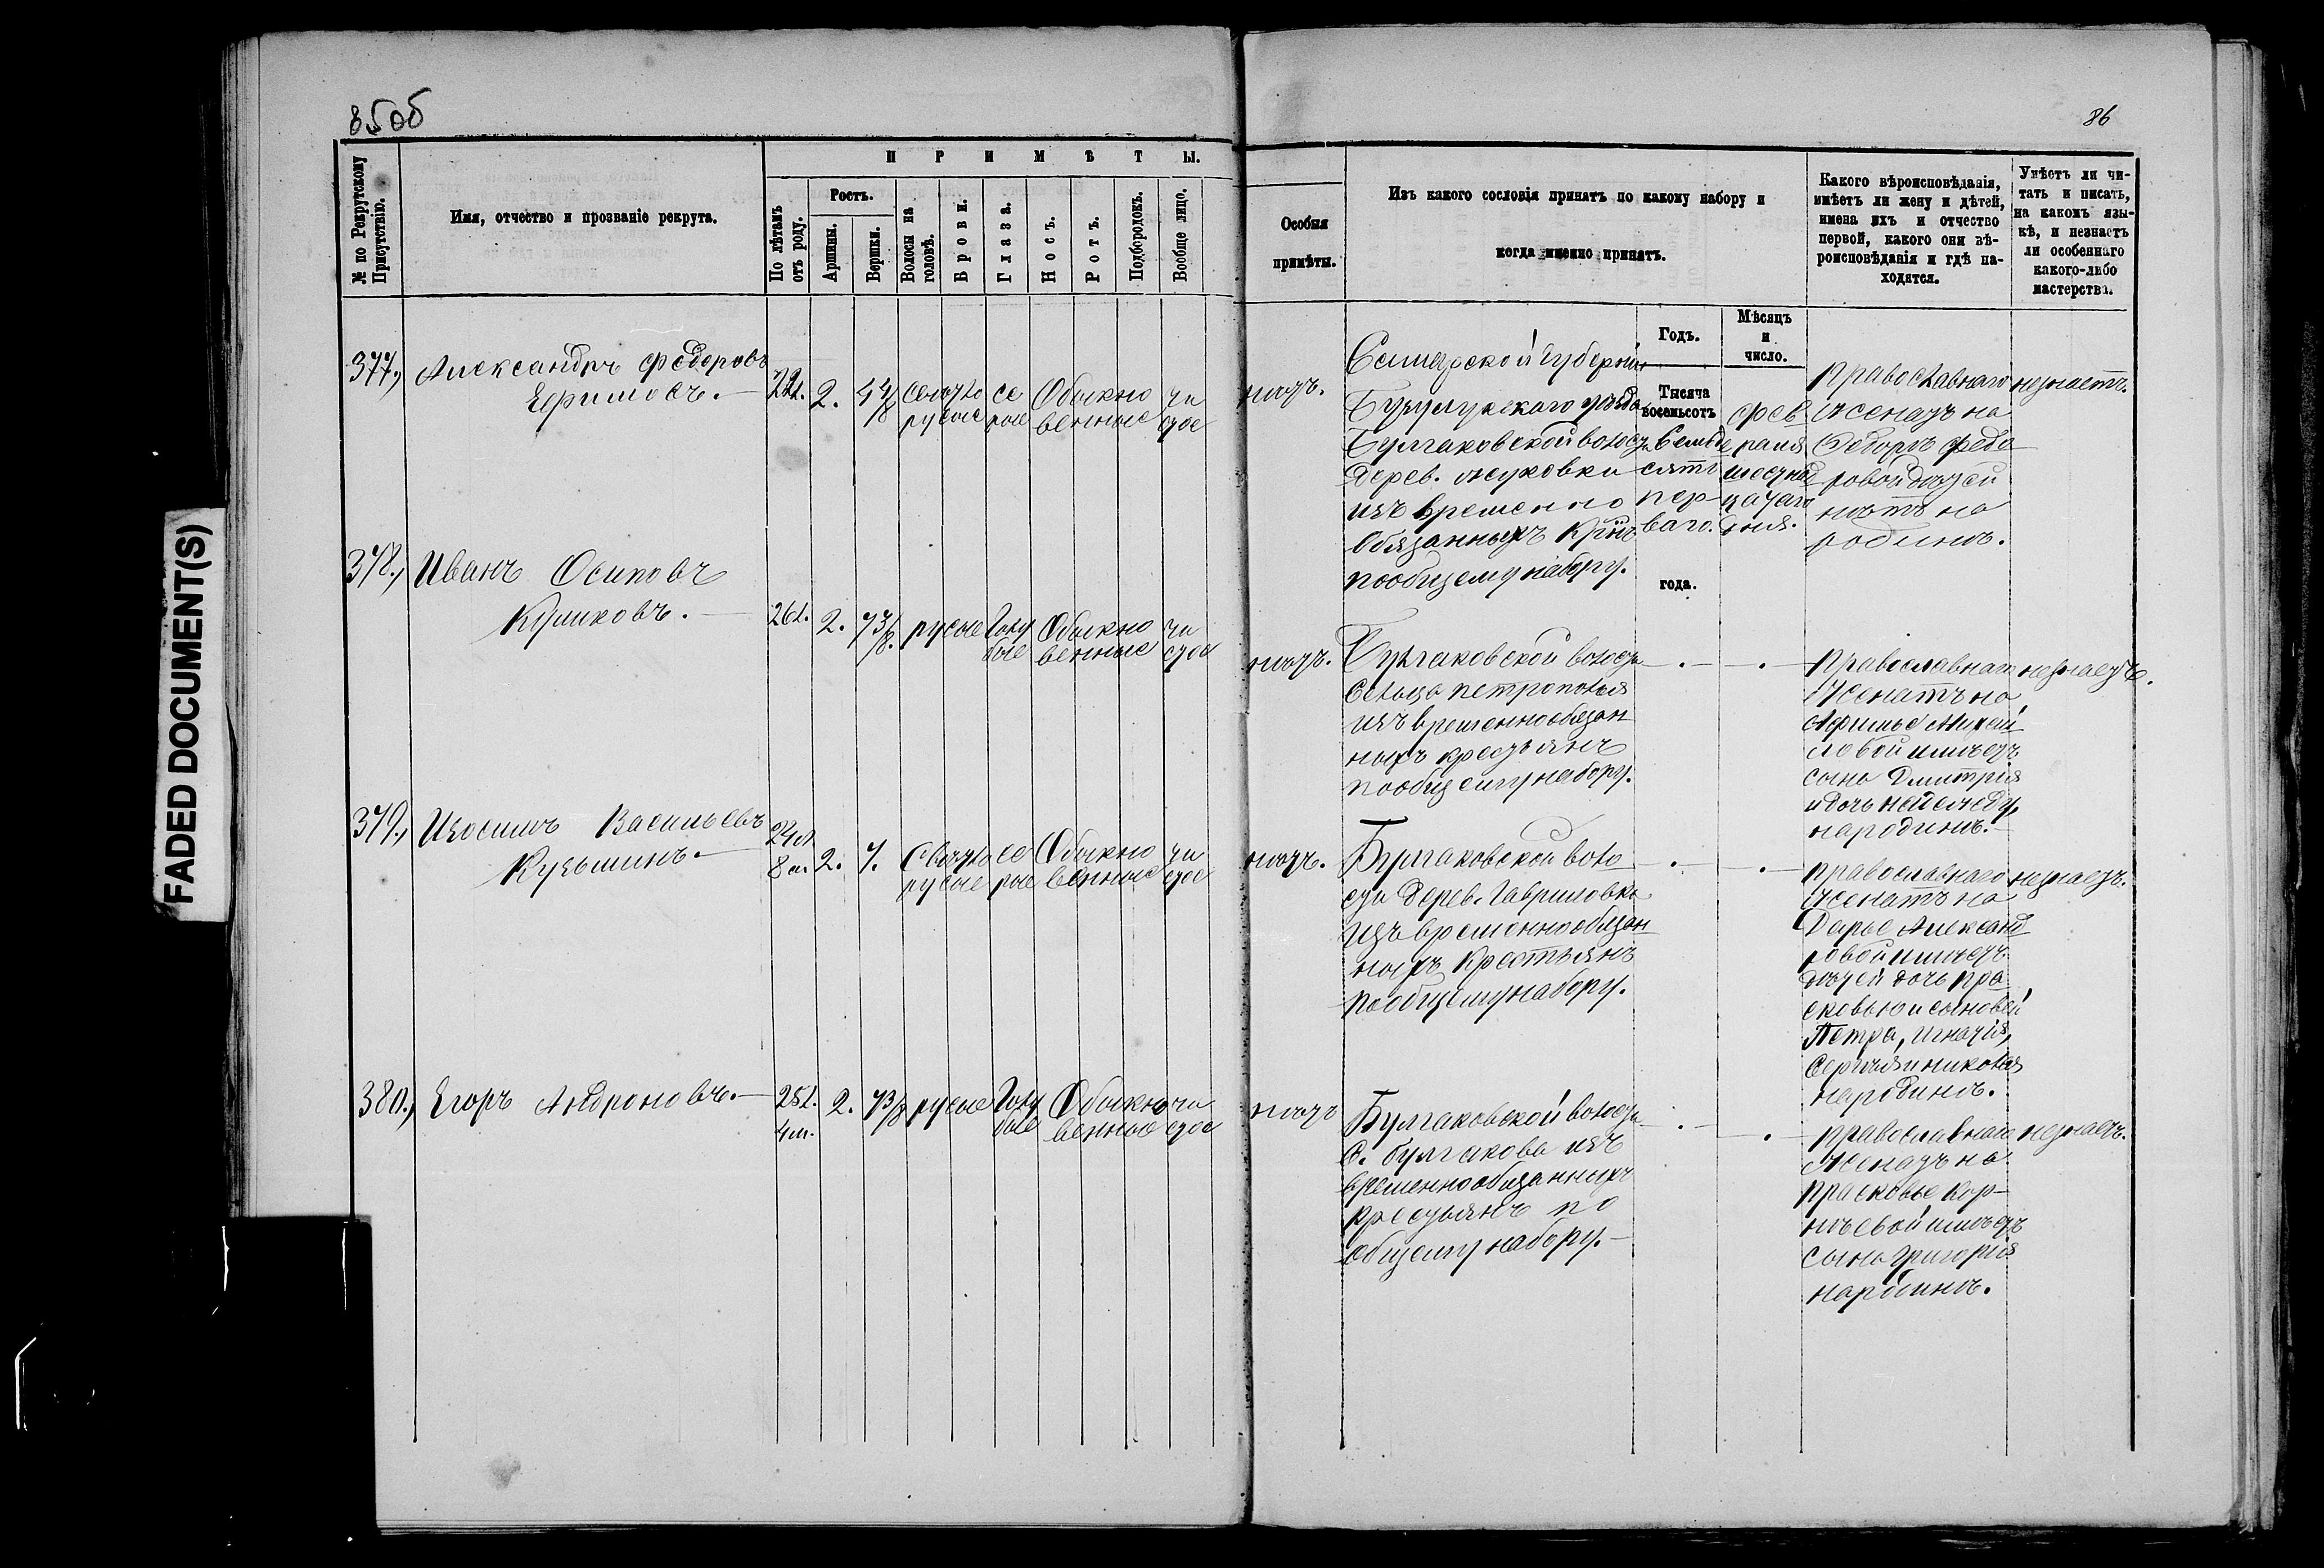 85об
86
FADED DOCUMENT(S)
№ по Рекрутскому
Присутствію.
Имя, отчество и прозваніе рекрута.
ПРИМѢТЫ.
По лѣтамъ
отъ роду.
Ростъ.
Аршины.
Вершки.
Волосы на
головѣ.
Брови.
Глаза.
Носъ.
Ротъ.
Подбородокъ.
Вообще лицо.
Особыя
примѣты.
Изъ какого сословія принятъ по какому набору и
когда именно принятъ.
Какого вѣроисповѣданія,
имѣетъ ли жену и дѣтей,
имена ихъ и отчество
первой, какого они вѣ-
роисповѣданія и гдѣ на-
ходятся.
Умѣетъ ли чи-
тать и писать,
на какомъ язы-
кѣ, и незнаетъ
ли особеннаго
какого-либо
мастерства.
Годъ.
Мѣсяцъ
и
число.
377.,
Александръ Федоровъ
Ефимовъ.
22л.
2.
4 4/8
Светло
русые
се
рые
Обыкно
венные
чи
стое
нѣтъ.
Самарской губерніи
Бузулукскаго уѣзда
Булгаковской волости
дерев. Жуковки
изъ временно
обязанныхъ Крнъ
пообщему набору.
Тысяча
восемьсотъ
семьде
сятъ
пер-
ваго.
года.
фев
раля
шестнад
цатаго
дня.
православнаго
женатъ на
Федоръ Федо
ровой дѣтей
нѣтъ на
родинѣ.
незнаетъ.
378.,
Иванъ Осиповъ
Куликовъ.
26л.
2.
7 3/8.
русые
Голу
бые
Обыкно
венные
чи
стое
нѣтъ.
Булгаковской волости
Сельца петрополья
изъ временнообязан
ныхъ крестьянъ
пообщему набору.
православнаго
Женатъ на
Афимье Михай
ловой имѣетъ
сына Дмитрія
и дочь
народинѣ.
незнаетъ.
379.,
Изосимъ Васильевъ
Кузьминъ.
24л
8 м.
2.
7.
Светло
русые
се
рые
Обыкно
венные
чи
стое
нѣтъ.
Булгаковской воло
сти дерев. Гавриловки
изъ временнообязан
ныхъ Крестьянъ
пообщему набору.
православнаго
женатъ на
Дарье Александ
ровой имѣетъ
дѣтей дочь пра
сковью и сыновей
Петра, Игнатія,
Сергѣя и николая
народинѣ.
незнаетъ.
380.,
Егоръ Андроновъ.
25л.
4м.
2.
7 3/8
русые
Голу
бые
Обыкно
венные
чи
стое
нѣтъ
Булгаковской волости
С. булгакова изъ
временнообязанныхъ
крестьянъ по
общему набору.
православнаго
Женатъ на
прасковье Кор-
нѣевой имѣетъ
сына Григорія
народинѣ.
незнаетъ.